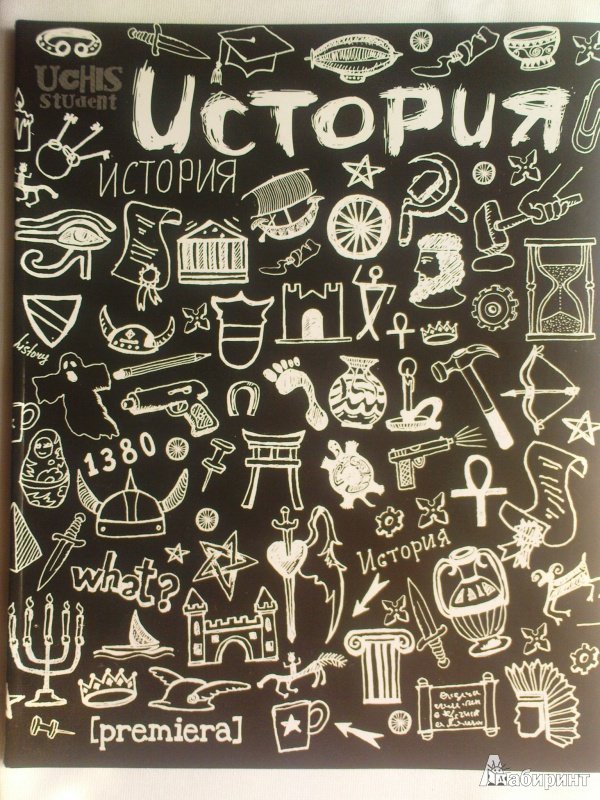 UCHIS
STUDENT
История
ИСТОРИЯ
history
1380
what?
История
[premiera]
Лабиринт